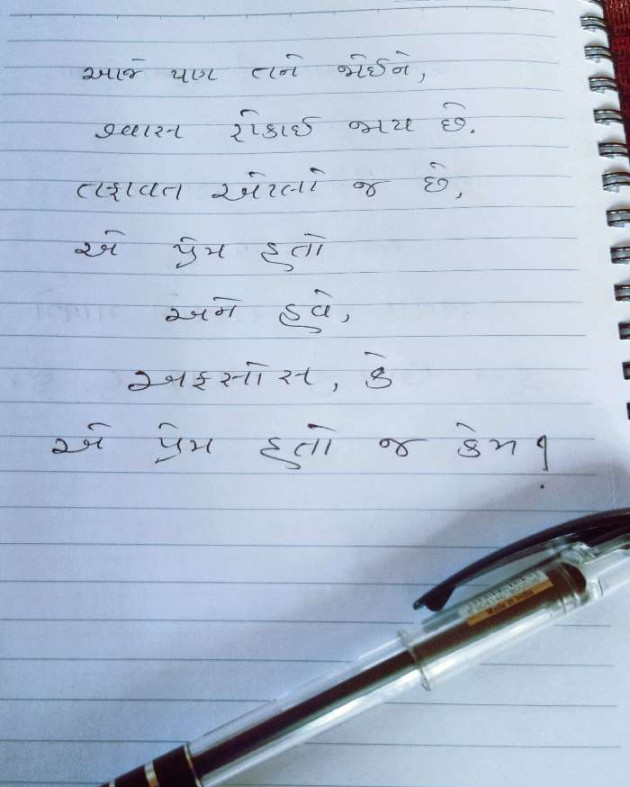 આજે પણ તને જોઈને,
શ્વાસ રોકાઈ જાય છે.
તફાવત એટલો જ છે,
એ પ્રેમ હતો
અને હવે,
અફસોસ, કે
એ પ્રેમ હતો જ કેમ?